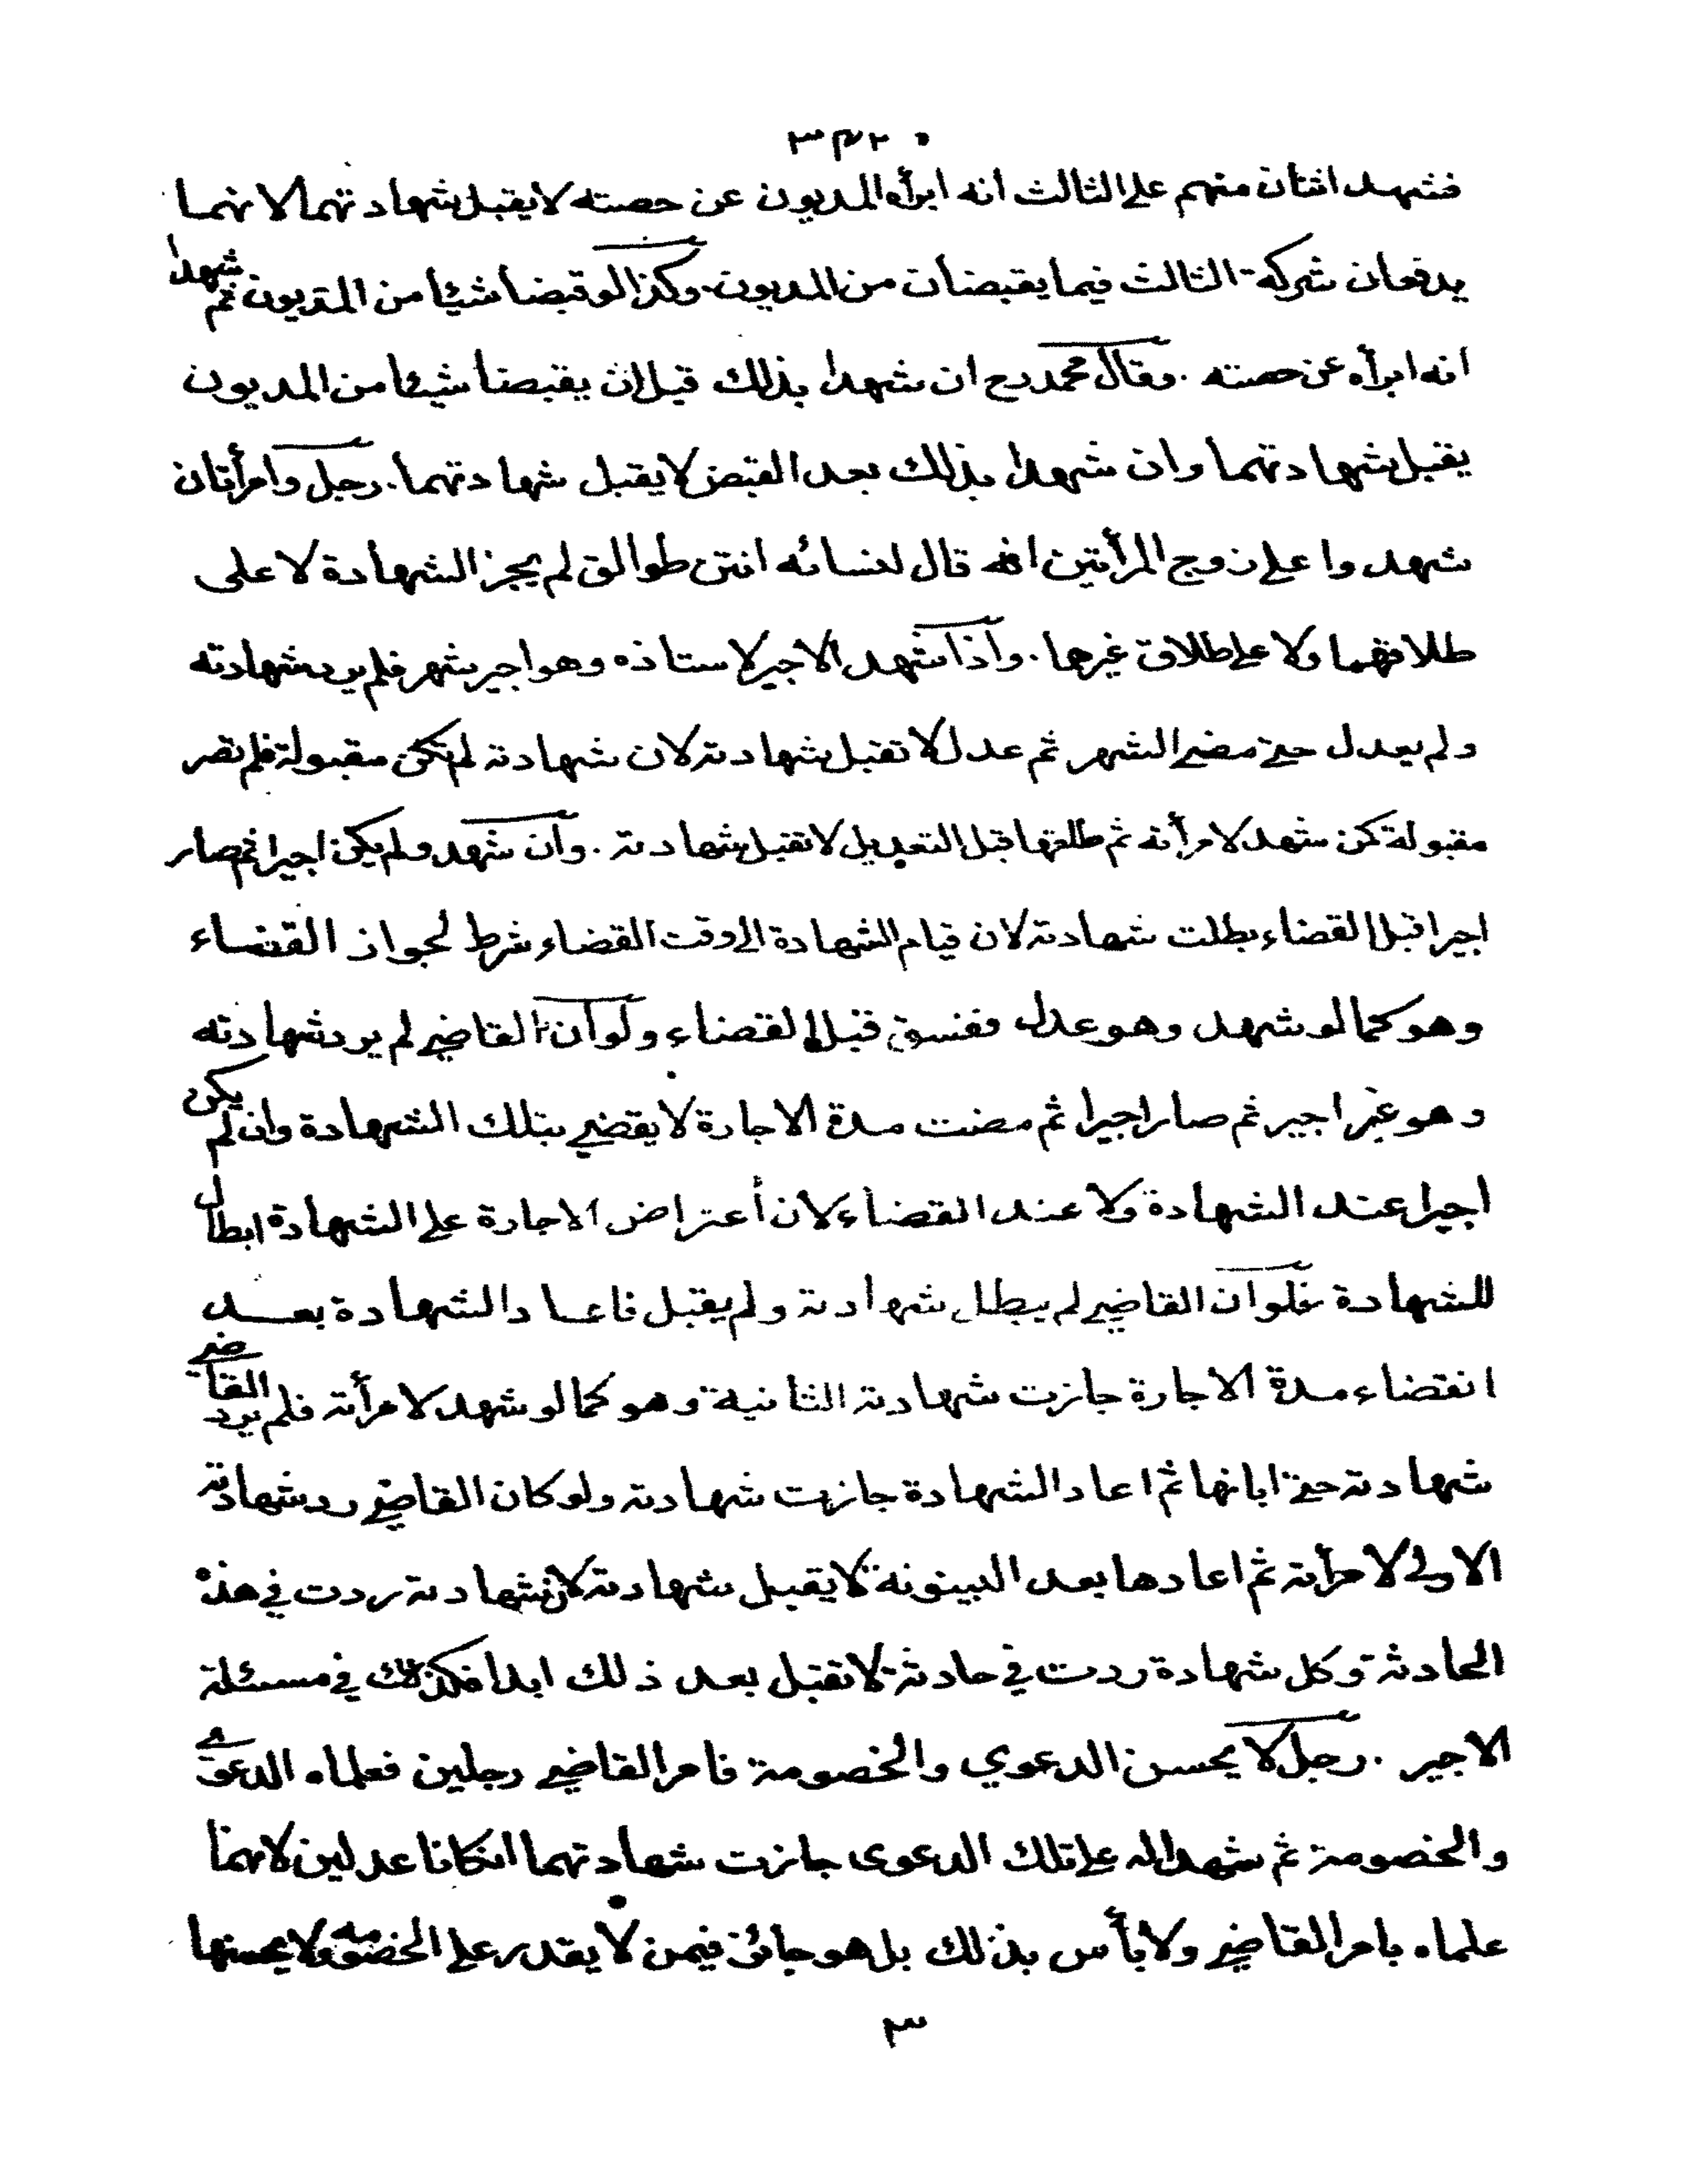 ٣٤٢٠
فشهد اثنان منهم على الثالث انه ابرأه المديون عن حصته لا يقبل شهادتهما لانهما
يدفعان شركة الثالث فيما يقبضان من المديون. وكذا لو قبضا شيئا من المديون ثم شهدا
انه ابرأه عن حصته. وقال محمد رح ان شهدا بذلك قبل ان يقبضا شيئا من المديون
يقبل شهادتهما وان شهدا بذلك بعد القبض لا يقبل شهادتهما. رجل وامرأتان
شهدوا على زوج المرأتين انه قال لنسائه انتن طوالق لم يجز الشهادة لا على
طلاقهما ولا على طلاق غيرها. واذا شهد الاجير لاستاذه وهو اجير شهر فلم يرد شهادته
ولم يعدل حتى مضى الشهر ثم عدل لا تقبل شهادته لان شهادته لم تكن مقبولة فلم تصر
مقبولة كمن شهد لامرأته ثم طلقها قبل التعديل لا تقبل شهادته. وان شهد ولم يكن اجيرا ثم صار
اجيرا قبل القضاء بطلت شهادته لان قيام الشهادة الى وقت القضاء شرط لجواز القضاء
وهو كما لو شهد وهو عدل ففسق قبل القضاء ولو ان القاضي لم يرد شهادته
وهو غير اجير ثم صار اجيرا ثم مضت مدة الاجارة لا يقضي بتلك الشهادة وان لم يكن
اجيرا عند الشهادة ولا عند القضاء لان أعتراض الاجارة على الشهادة ابطال
للشهادة فلو ان القاضي لم يبطل شهادته ولم يقبل فاعاد الشهادة بعد
انقضاء مدة الاجارة جازت شهادته الثانية وهو كما لو شهد لامرأته فلم يرد القاضي
شهادته حتى ابانها ثم اعاد الشهادة جازت شهادته ولو كان القاضي رد شهادته
الاولى لامرأته ثم اعادها بعد البينونة لا يقبل شهادته لان شهادته ردت في هذه
الحادثة وكل شهادة ردت في حادثة لا تقبل بعد ذلك ابدا فكذلك في مسئلة
الاجير. رجل لا يحسن الدعوي والخصومة فامر القاضي رجلين فعلماه الدعوى
والخصومة ثم شهدا له على تلك الدعوى جازت شهادتهما انكانا عدلين لانهما
علماه بامر القاضي ولا بأس بذلك بل هو جائز فيمن لا يقدر على الخصومة ولا يحسنها
٣